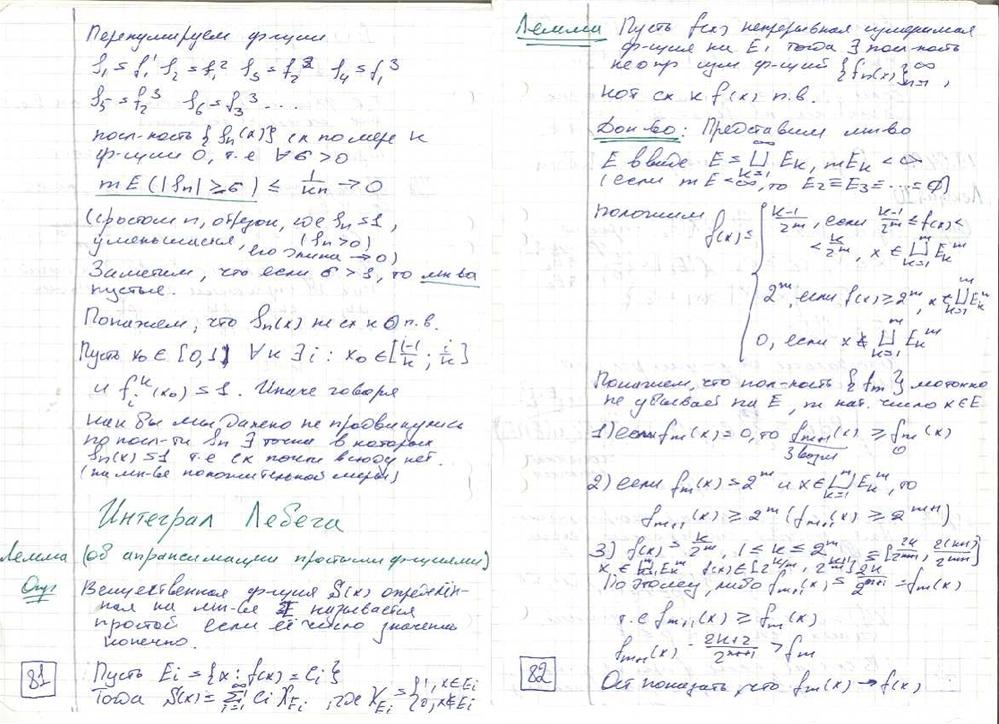 Перенумеруем ф-ции
f₁ = f₁¹ f₂ = f₁² f₃ = f₂² f₄ = f₁³
f₅ = f₂³ f₆ = f₃³ ...
посл-ность {fₙ(x)} сх по мере к
ф-ции 0, т.е ∀σ>0
mE(|fₙ| ≥ σ) ≤ 1/kₙ → 0
(с ростом n, отрезок, где fₙ = 1,
уменьшается, (fₙ > 0)
его длина → 0)
Заметим, что если σ > 1, то мн-ва
пустые.
Покажем, что fₙ(x) не сх к 0 п.в.
Пусть x₀ ∈ [0,1] ∀k ∃i : x₀ ∈ [i-1/k ; i/k]
и fᵢᵏ(x₀) = 1. Иначе говоря
как бы мы далеко не продвинулись
по посл-ти fₙ ∃ точки в которых
fₙ(x) = 1 т.е сх почти всюду нет.
(на мн-ве положительной меры)
Интеграл Лебега
Лемма (об апраксимации простыми ф-циями)
Опр Вещественная ф-ция S(x) определён-
ная на мн-ве E называется
простой если её число значений
конечно.
Пусть Eᵢ = {x : f(x) = Cᵢ}
81 Тогда S(x) = Σ Cᵢ χ_Eᵢ, где χ_Eᵢ = {1, x∈Eᵢ 0, x∉Eᵢ
Лемма Пусть f(x) непрерывная измеримая
ф-ция на E, тогда ∃ посл-ность
неотр изм ф-ций {fₙ(x)}ₙ₌₁^∞,
кот сх к f(x) п.в.
Док-во: Представим мн-во
E в виде E = ⊔_{k=1}^∞ Eₖ, mEₖ < ∞
(если mE < ∞, то E₂ = E₃ = ... = ∅)
Положим f(x) = { k-1/2^m, если k-1/2^m ≤ f(x) <
< k/2^m, x ∈ ⊔_{k=1}^m Eₖ^m
2^m, если f(x) ≥ 2^m, x ∈ ⊔_{k=1}^m Eₖ^m
0, если x ∉ ⊔_{k=1}^m Eₖ^m
Покажем, что пол-ность {fₘ} мотонно
не убывает на E, m нат. число x∈E
1) если fₘ(x) = 0, то fₘ₊₁(x) ≥ fₘ(x)
0
2) если fₘ(x) = 2^m и x ∈ ⊔_{k=1}^m Eₖ^m, то
fₘ₊₁(x) ≥ 2^m (fₘ₊₁(x) ≥ 2^{m+1})
3) f(x) = k/2^m, 1 ≤ k ≤ 2^m = [2k/2^{m+1}, 2(k+1)/2^{m+1}]
x ∈ ⊔_{k=1}^m Eₖ^m f(x) ∈ [2^k/m, 2^{k+1}]
Поэтому, либо fₘ₊₁(x) = 2k/2^{m+1} = fₘ(x)
т.е fₘ₊₁(x) ≥ fₘ(x)
fₘ₊₁(x) - 2k+2/2^{m+1} > fₘ
82 Ост показать, что fₘ(x) → f(x)